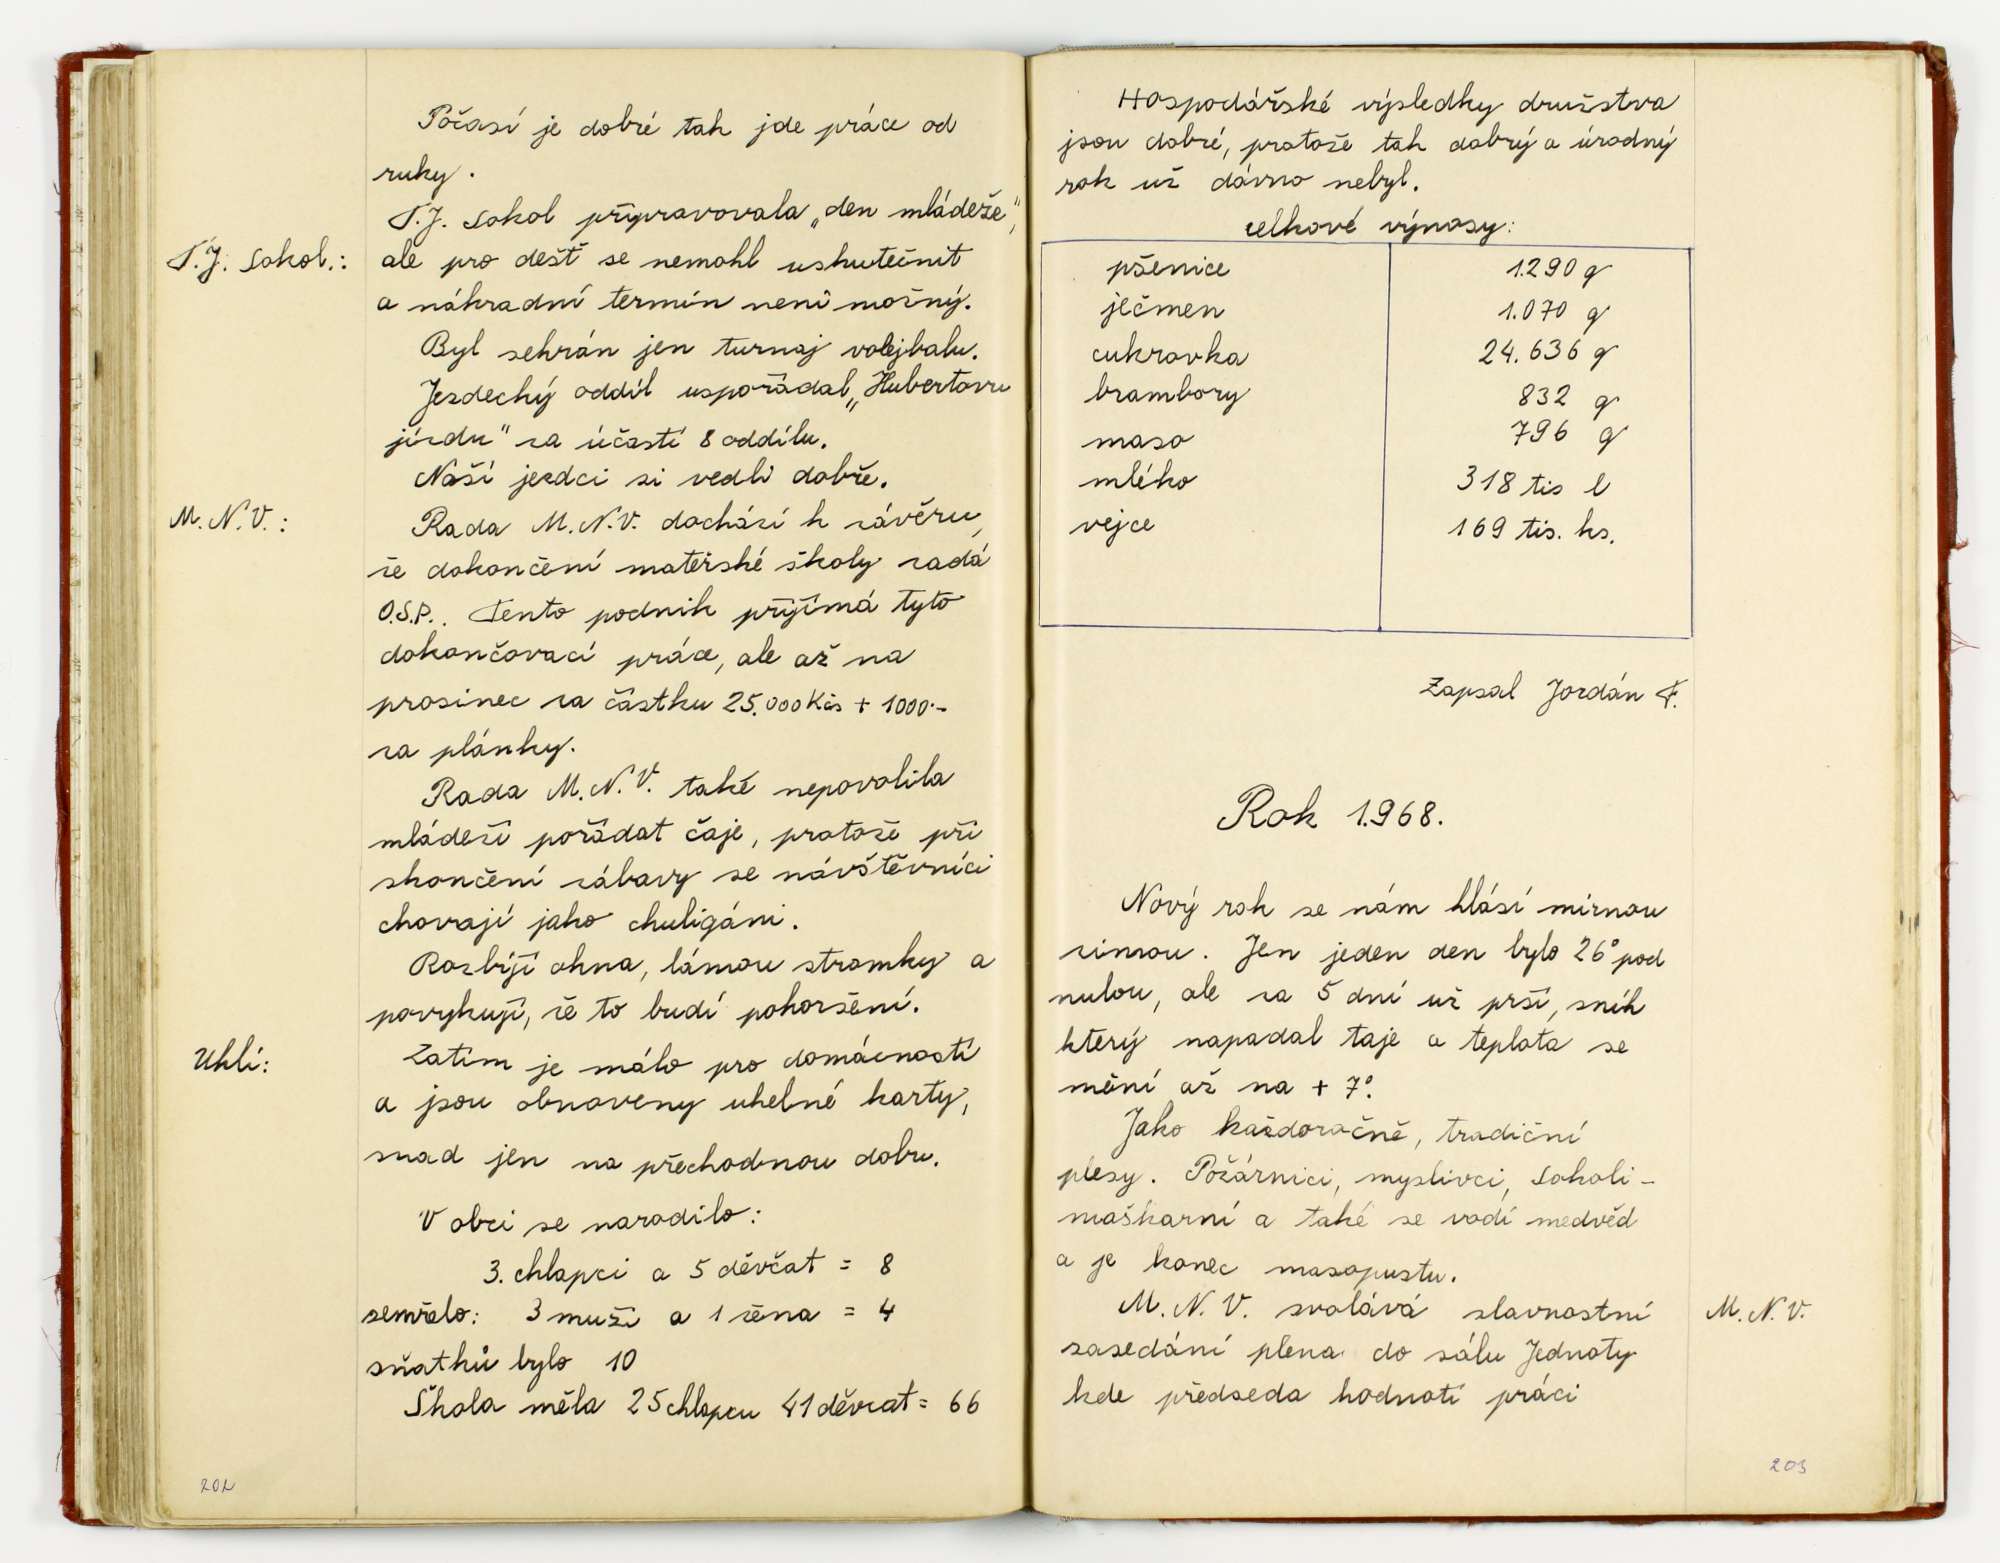 Počasí je dobré tak jde práce od
ruky.
T.J. Sokol připravovala „den mládeže",
T.J. Sokol.:
ale pro dešť se nemohl uskutečnit
a náhradní termín není možný.
Byl sehrán jen turnaj volejbalu.
Jezdecký oddíl uspořádal „Hubertovu
jízdu" za účasti 8 oddílu.
Naší jezdci si vedli dobře.
M.N.V.:
Rada M.N.V. dochází k závěru,
že dokončení mateřské školy zadá
O.S.P.. Tento podnik přijímá tyto
dokončovací práce, ale až na
prosinec za částku 25.000 Kčs + 1000.-
za plánky.
Rada M.N.V. také nepovolila
mládeži pořádat čaje, protože při
skončení zábavy se návštěvníci
chovají jako chuligáni.
Rozbíjí okna, lámou stromky a
povykují, že to budí pohoršení.
Uhlí:
Zatím je málo pro domácnosti
a jsou obnoveny uhelné karty,
snad jen na přechodnou dobu.
V obci se narodilo:
3. chlapci a 5 děvčat = 8
zemřelo: 3 muži a 1 žena = 4
sňatků bylo 10
Škola měla 25 chlapcu 41 děvcat = 66
202
Hospodářské výsledky družstva
jsou dobré, protože tak dobrý a úrodný
rok už dávno nebyl.
celkové výnosy:
pšenice 1.290 q
ječmen 1.070 q
cukrovka 24.636 q
brambory 832 q
maso 796 q
mléko 318 tis l
vejce 169 tis. ks.
Zapsal Jordán F.
Rok 1.968.
Nový rok se nám hlásí mírnou
zimou. Jen jeden den bylo 26° pod
nulou, ale za 5 dní už prší, sníh
který napadal taje a teplota se
mění až na + 7°.
Jako každoročně, tradiční
plesy. Požárníci, myslivci, Sokoli-
maškarní a také se vodí medvěd
a je konec masopustu.
M.N.V. svolává slavnostní
M.N.V.
zasedání plena do sálu Jednoty
kde předseda hodnotí práci
203